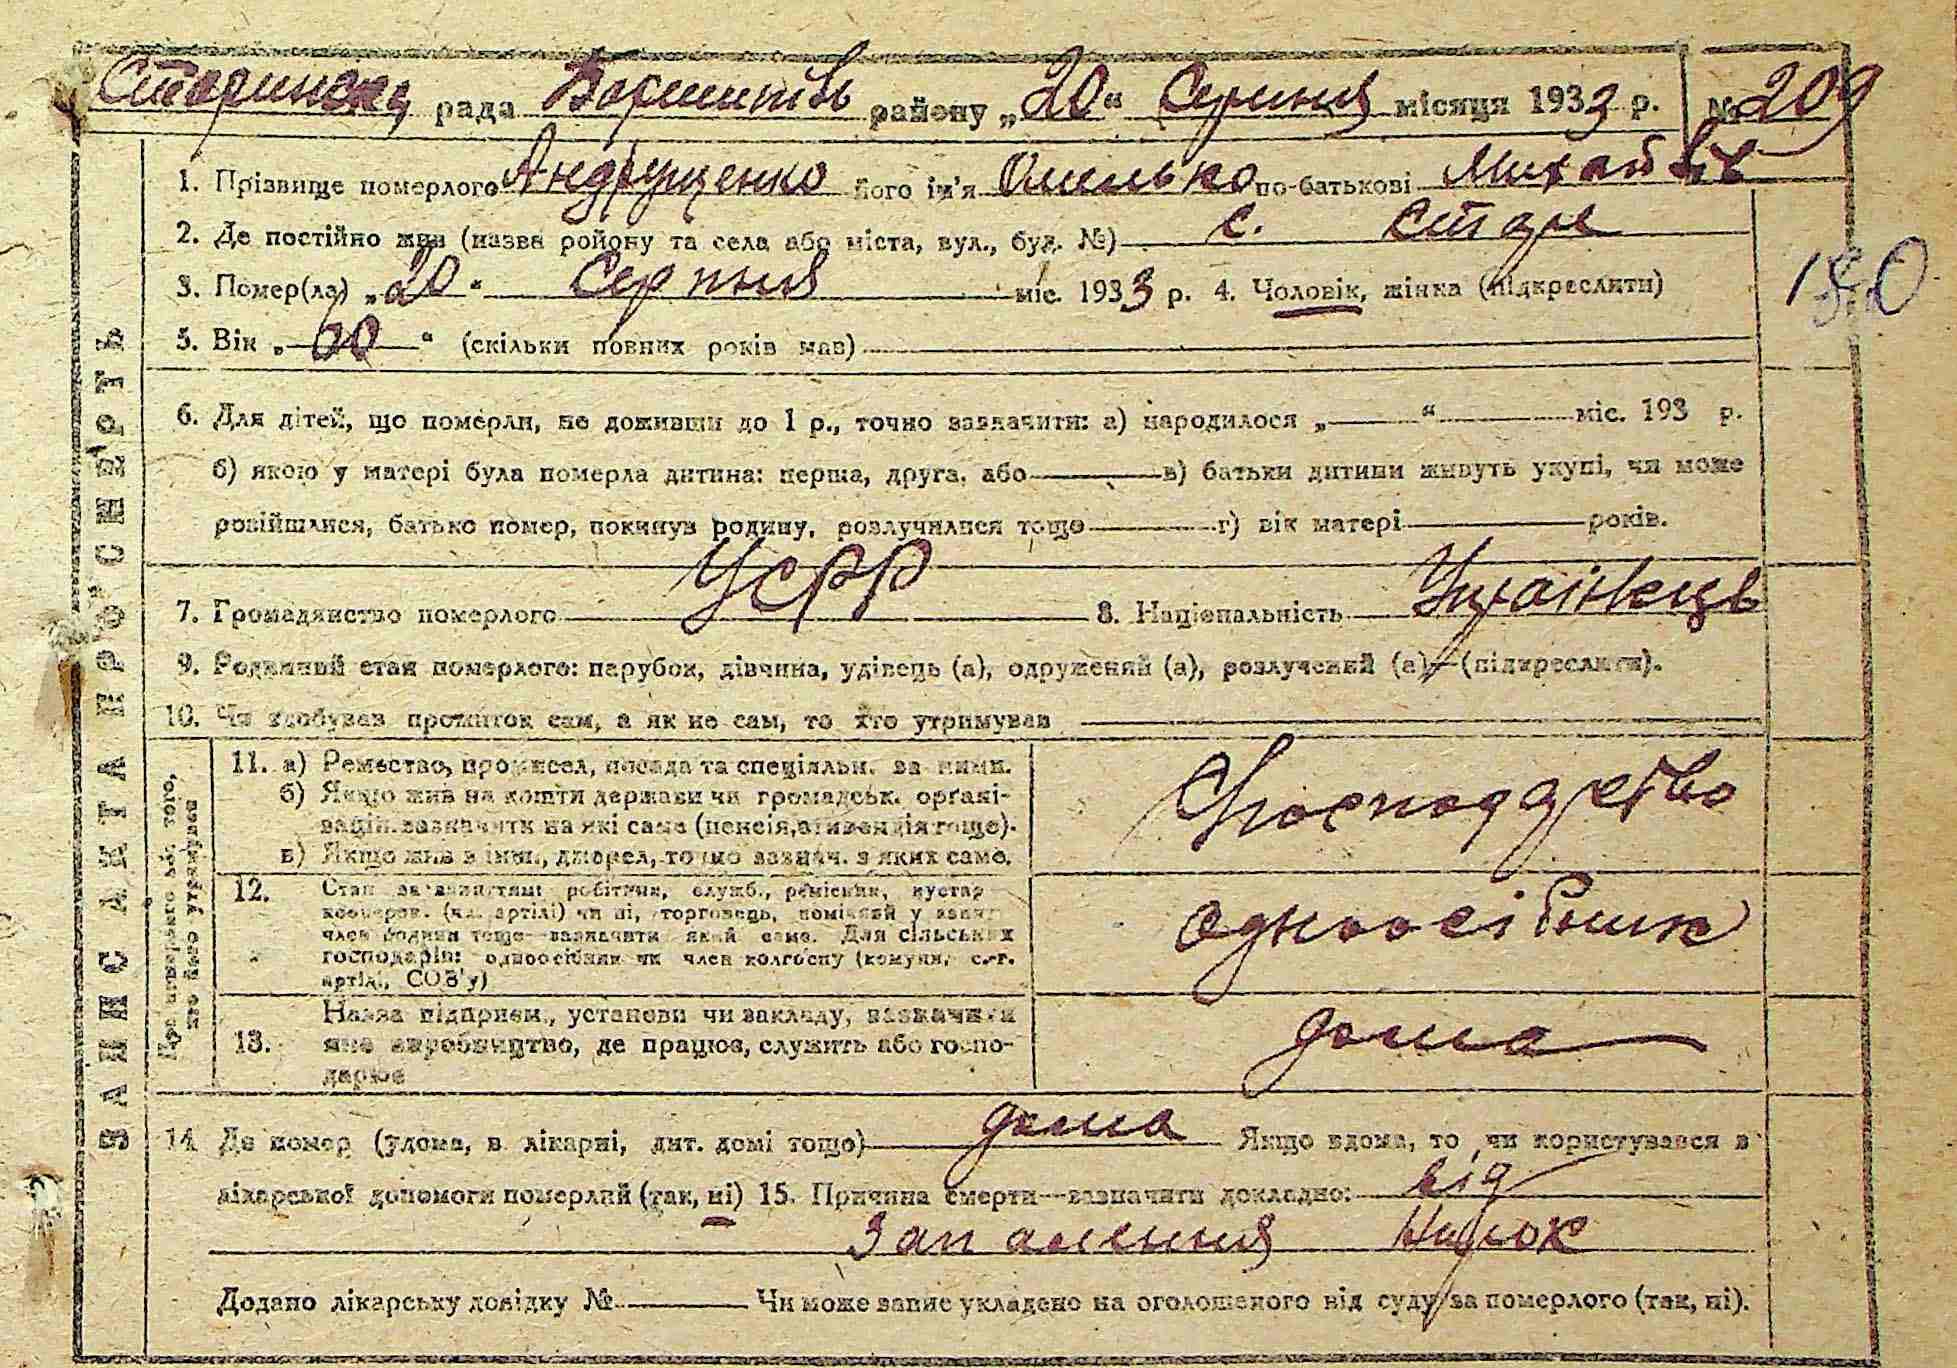 Старинська рада Бориспільс району „20“ Серпня місяця 1933 р. № 209
1. Прізвище померлого Андрущенко його ім'я Омелько по-батькові Михайлів
2. Де постійно жив (назва ройону та села або міста, вул., буд. №) с. Стар
3. Помер(ла) „20“ Серпня міс. 1933 р. 4. Чоловік, жінка (підкреслити)
5. Вік „60“ (скільки повних років мав)
6. Для дітей, що померли, не доживши до 1 р., точно зазначити: а) народилося „ “ міс. 193 р.
б) якою у матері була померла дитина: перша, друга, або в) батьки дитини живуть укупі, чи може
розійшлися, батько помер, покинув родину, розлучилися тощо г) вік матері років.
7. Громадянство померлого УСРР 8. Національність Українець
9. Родинний стан померлого: парубок, дівчина, удівець (а), одружений (а), розлучений (а)—(підкреслити).
10. Чи здобував прожиток сам, а як не сам, то хто утримував
ЗАПИС АКТА ПРО СМЕРТЬ
Про померлого або того,
хто його утримував
11. а) Ремество, промисел, посада та спеціяльн. за ними.
б) Якщо жив на кошти держави чи громадськ. організацій,
зазначити на які саме (пенсія, стипендія тощо).
в) Якщо жив з інш. джерел, точно зазнач. з яких саме.
Господарство
12. Стан за заняттям: робітник, служб., ремісник, кустар
кооперов. (чл. артілі) чи ні, торговець, помічний у занят.
член родини тощо—зазначити який саме. Для сільських
господарів: одноосібник чи член колгоспу (комуни, с.-г.
артілі, СОЗ'у)
одноосібник
Назва підприєм., установи чи закладу, зазначити
13. яке виробництво, де працює, служить або госпо-
дарює
дома
14 Де помер (удома, в лікарні, дит. домі тощо) дома Якщо вдома, то чи користувався з
лікарської допомоги померлий (так, ні) 15. Причина смерти—зазначити докладно: від
Запалення Нирок
Додано лікарську довідку № Чи може запис укладено на оголошеного від суду за померлого (так, ні).